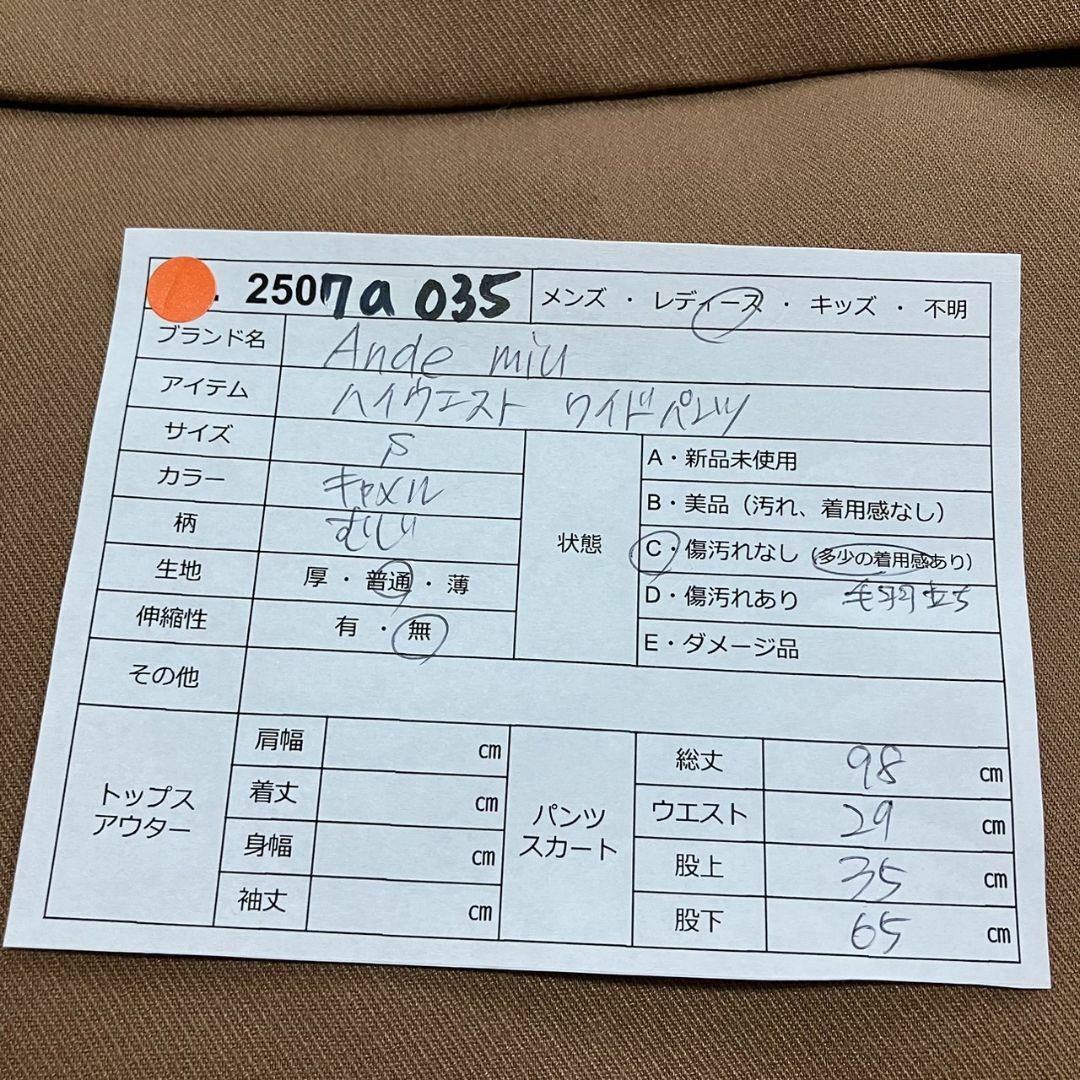 . 2507a035 メンズ ・ レディース ・ キッズ ・ 不明
ブランド名 Ande miu
アイテム ハイウエスト ワイドパンツ
サイズ S
カラー キャメル
柄 むじ
生地 厚・普通・薄
伸縮性 有 ・ 無
状態
A・新品未使用
B・美品（汚れ、着用感なし）
C・傷汚れなし（多少の着用感あり）
D・傷汚れあり 毛羽立ち
E・ダメージ品
その他
トップス
アウター
肩幅 cm
着丈 cm
身幅 cm
袖丈 cm
パンツ
スカート
総丈 98 cm
ウエスト 29 cm
股上 35 cm
股下 65 cm